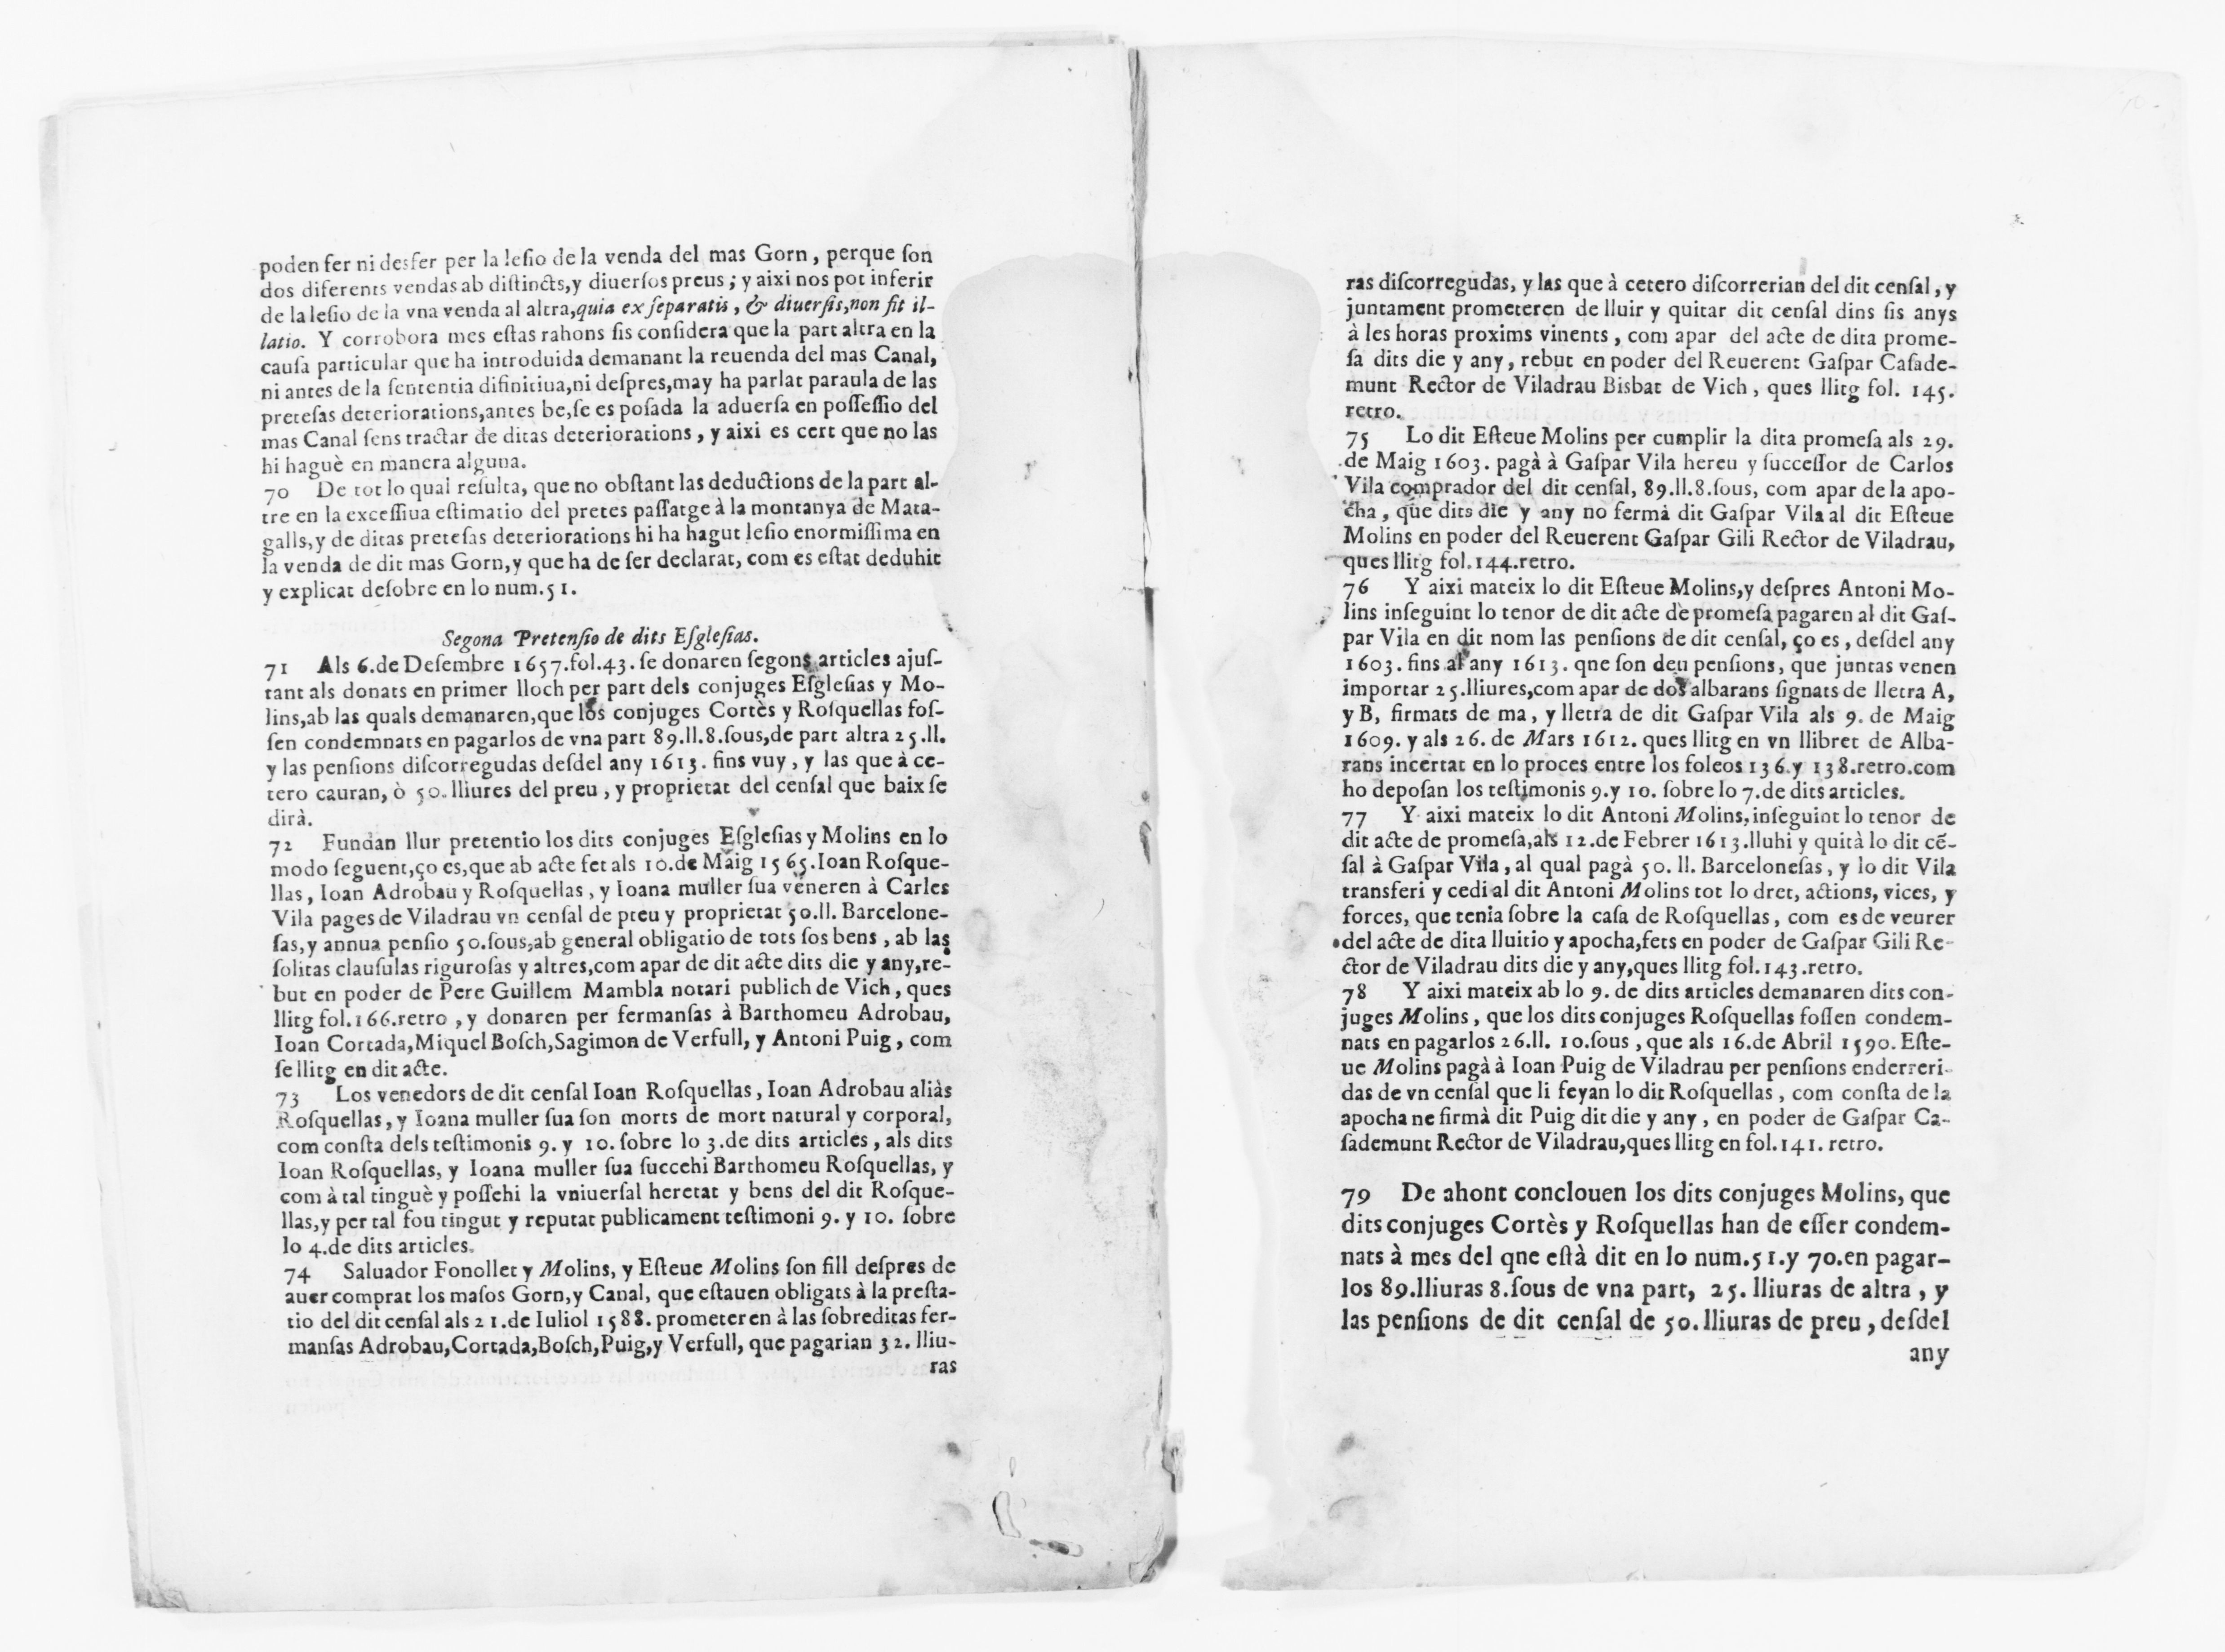 poden fer ni desfer per la lesio de la venda del mas Gorn, perque son
dos diferents vendas ab distincts, y diuersos preus; y aixi nos pot inferir
de la lesio de la vna venda al altra, quia ex separatis, & diuersis, non fit il-
latio. Y corrobora mes estas rahons sis considera que la part altra en la
causa particular que ha introduida demanant la reuenda del mas Canal,
ni antes de la sententia difinitiua, ni despres, may ha parlat paraula de las
pretesas deteriorations, antes be, se es posada la aduersa en possessio del
mas Canal sens tractar de ditas deteriorations, y aixi es cert que no las
hi haguè en manera alguna.
70 De tot lo qual resulta, que no obstant las deductions de la part al-
tre en la excessiua estimatio del pretes passatge à la montanya de Mata-
galls, y de ditas pretesas deteriorations hi ha hagut lesio enormissima en
la venda de dit mas Gorn, y que ha de ser declarat, com es estat deduhit
y explicat desobre en lo num. 51.
Segona Pretensio de dits Esglesias.
71 Als 6. de Desembre 1657. fol. 43. se donaren segons articles ajus-
tant als donats en primer lloch per part dels conjuges Esglesias y Mo-
lins, ab las quals demanaren, que los conjuges Cortès y Rosquellas fos-
sen condemnats en pagarlos de vna part 89. ll. 8. sous, de part altra 25. ll.
y las pensions discorregudas desdel any 1613. fins vuy, y las que à ce-
tero cauran, ò 50. lliures del preu, y proprietat del censal que baix se
dirà.
72 Fundan llur pretentio los dits conjuges Esglesias y Molins en lo
modo seguent, ço es, que ab acte fet als 10. de Maig 1565. Ioan Rosque-
llas, Ioan Adrobau y Rosquellas, y Ioana muller sua veneren à Carles
Vila pages de Viladrau vn censal de preu y proprietat 50. ll. Barcelone-
sas, y annua pensio 50. sous, ab general obligatio de tots sos bens, ab las
solitas clausulas rigurosas y altres, com apar de dit acte dits die y any, re-
but en poder de Pere Guillem Mambla notari publich de Vich, ques
llitg fol. 166. retro, y donaren per fermansas à Barthomeu Adrobau,
Ioan Cortada, Miquel Bosch, Sagimon de Verfull, y Antoni Puig, com
se llitg en dit acte.
73 Los venedors de dit censal Ioan Rosquellas, Ioan Adrobau aliàs
Rosquellas, y Ioana muller sua son morts de mort natural y corporal,
com consta dels testimonis 9. y 10. sobre lo 3. de dits articles, als dits
Ioan Rosquellas, y Ioana muller sua succehi Barthomeu Rosquellas, y
com à tal tinguè y possehi la vniuersal heretat y bens del dit Rosque-
llas, y per tal fou tingut y reputat publicament testimoni 9. y 10. sobre
lo 4. de dits articles.
74 Saluador Fonollet y Molins, y Esteue Molins son fill despres de
auer comprat los masos Gorn, y Canal, que estauen obligats à la presta-
tio del dit censal als 21. de Iuliol 1588. prometeren à las sobreditas fer-
mansas Adrobau, Cortada, Bosch, Puig, y Verfull, que pagarian 32. lliu-
ras
ras discorregudas, y las que à cetero discorrerian del dit censal, y
juntament prometeren de lluir y quitar dit censal dins sis anys
à les horas proxims vinents, com apar del acte de dita prome-
sa dits die y any, rebut en poder del Reuerent Gaspar Casade-
munt Rector de Viladrau Bisbat de Vich, ques llitg fol. 145.
retro.
75 Lo dit Esteue Molins per cumplir la dita promesa als 29.
de Maig 1603. pagà à Gaspar Vila hereu y successor de Carlos
Vila comprador del dit censal, 89. ll. 8. sous, com apar de la apo-
cha, que dits die y any no fermà dit Gaspar Vila al dit Esteue
Molins en poder del Reuerent Gaspar Gili Rector de Viladrau,
ques llitg fol. 144. retro.
76 Y aixi mateix lo dit Esteue Molins, y despres Antoni Mo-
lins inseguint lo tenor de dit acte de promesa pagaren al dit Gas-
par Vila en dit nom las pensions de dit censal, ço es, desdel any
1603. fins al any 1613. qne son deu pensions, que juntas venen
importar 25. lliures, com apar de dos albarans signats de lletra A,
y B, firmats de ma, y lletra de dit Gaspar Vila als 9. de Maig
1609. y als 26. de Mars 1612. ques llitg en vn llibret de Alba-
rans incertat en lo proces entre los foleos 136. y 138. retro. com
ho deposan los testimonis 9. y 10. sobre lo 7. de dits articles.
77 Y aixi mateix lo dit Antoni Molins, inseguint lo tenor de
dit acte de promesa, als 12. de Febrer 1613. lluhi y quità lo dit cẽ-
sal à Gaspar Vila, al qual pagà 50. ll. Barcelonesas, y lo dit Vila
transferi y cedi al dit Antoni Molins tot lo dret, actions, vices, y
forces, que tenia sobre la casa de Rosquellas, com es de veurer
del acte de dita lluitio y apocha, fets en poder de Gaspar Gili Re-
ctor de Viladrau dits die y any, ques llitg fol. 143. retro.
78 Y aixi mateix ab lo 9. de dits articles demanaren dits con-
juges Molins, que los dits conjuges Rosquellas fossen condem-
nats en pagarlos 26. ll. 10. sous, que als 16. de Abril 1590. Este-
ue Molins pagà à Ioan Puig de Viladrau per pensions enderreri-
das de vn censal que li feyan lo dit Rosquellas, com consta de la
apocha ne firmà dit Puig dit die y any, en poder de Gaspar Ca-
sademunt Rector de Viladrau, ques llitg en fol. 141. retro.
79 De ahont conclouen los dits conjuges Molins, que
dits conjuges Cortès y Rosquellas han de esser condem-
nats à mes del qne està dit en lo num. 51. y 70. en pagar-
los 89. lliuras 8. sous de vna part, 25. lliuras de altra, y
las pensions de dit censal de 50. lliuras de preu, desdel
any